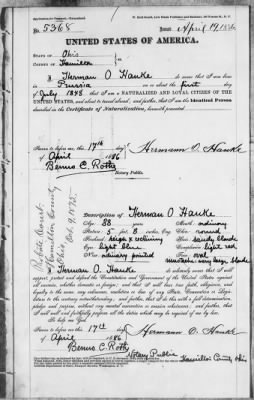 No. 5368
Issued April 19, 1886
UNITED STATES OF AMERICA.
STATE OF Ohio
COUNTY OF Hamilton
I Herman O. Hanke do swear that I was born
in Prussia on or about the first day
of July 1848 that I am a NATURALIZED AND LOYAL CITIZEN OF THE
UNITED STATES, and about to travel abroad; and further, that I am the Identical Person
described in the Certificate of Naturalization, herewith presented.
Sworn to before me this 17th day
of April 1886
Benno C. Roth
Notary Public.
Hermann O. Hanke
Probate Court
Hamilton County
Ohio
Oct. 9, 1875.
Description of Herman O. Hanke
Age: 38 years
Mouth: ordinary
Stature: 5 feet 8 inches, Eng.
Chin: round
Forehead:
Hair: sandy blonde
Eyes: light blue
Complexion: light red
Nose: ordinary pointed
Face: oval
I, Herman O. Hanke do solemnly swear that I will
support, protect and defend the Constitution and Government of the United States against
all enemies, whether domestic or foreign; and that I will bear true faith, allegiance, and
loyalty to the same, any ordinance, resolution or law of any State, Convention or Legis-
lature to the contrary notwithstanding; and further, that I do this with a full determination,
pledge and purpose, without any mental reservation or evasion whatsoever; and further, that
I will well and faithfully perform all the duties which may be required of me by law.
So help me God.
Sworn to before me this 17th day
of April 1886
Benno C. Roth
Notary Public
Hamilton County, Ohio
Hermann O. Hanke